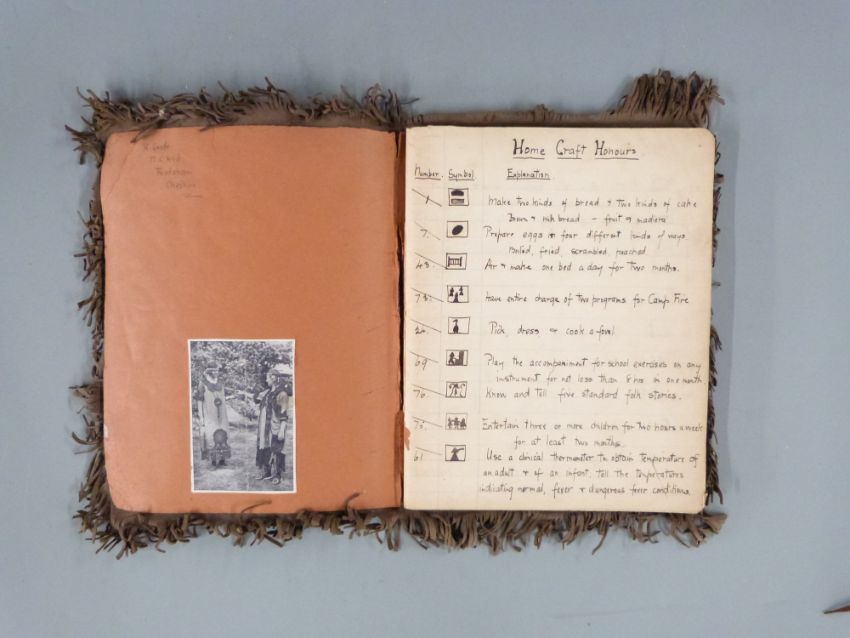 Frodsham
Cheshire
Home Craft Honours
Number. Symbol Explanation
1 Make two kinds of bread & two kinds of cake
Brown & milk bread - fruit & madeira
7. Prepare eggs in four different kinds of ways
Boiled, fried, scrambled, poached.
43. Air & make one bed a day for two months.
72. Have entire charge of two programs for Camp Fire
24. Pick, dress, & cook a fowl
69 Play the accompaniment for school exercises on any
instrument for not less than 8 hrs in one month
76. Know and tell five standard folk stories.
75. Entertain three or more children for two hours a week
for at least two months.
61. Use a clinical thermometer to obtain temperature of
an adult & of an infant, tell the temperatures
indicating normal, fever & dangerous fever conditions.